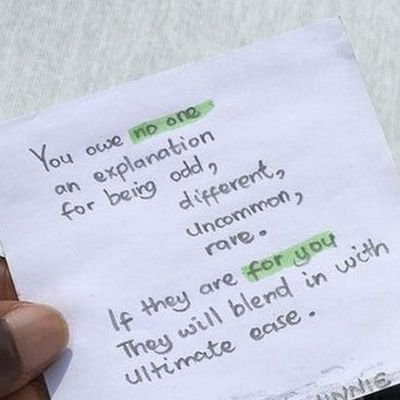 You owe no one
an explanation
for being odd,
different,
uncommon,
rare.
If they are for you
They will blend in with
ultimate ease.